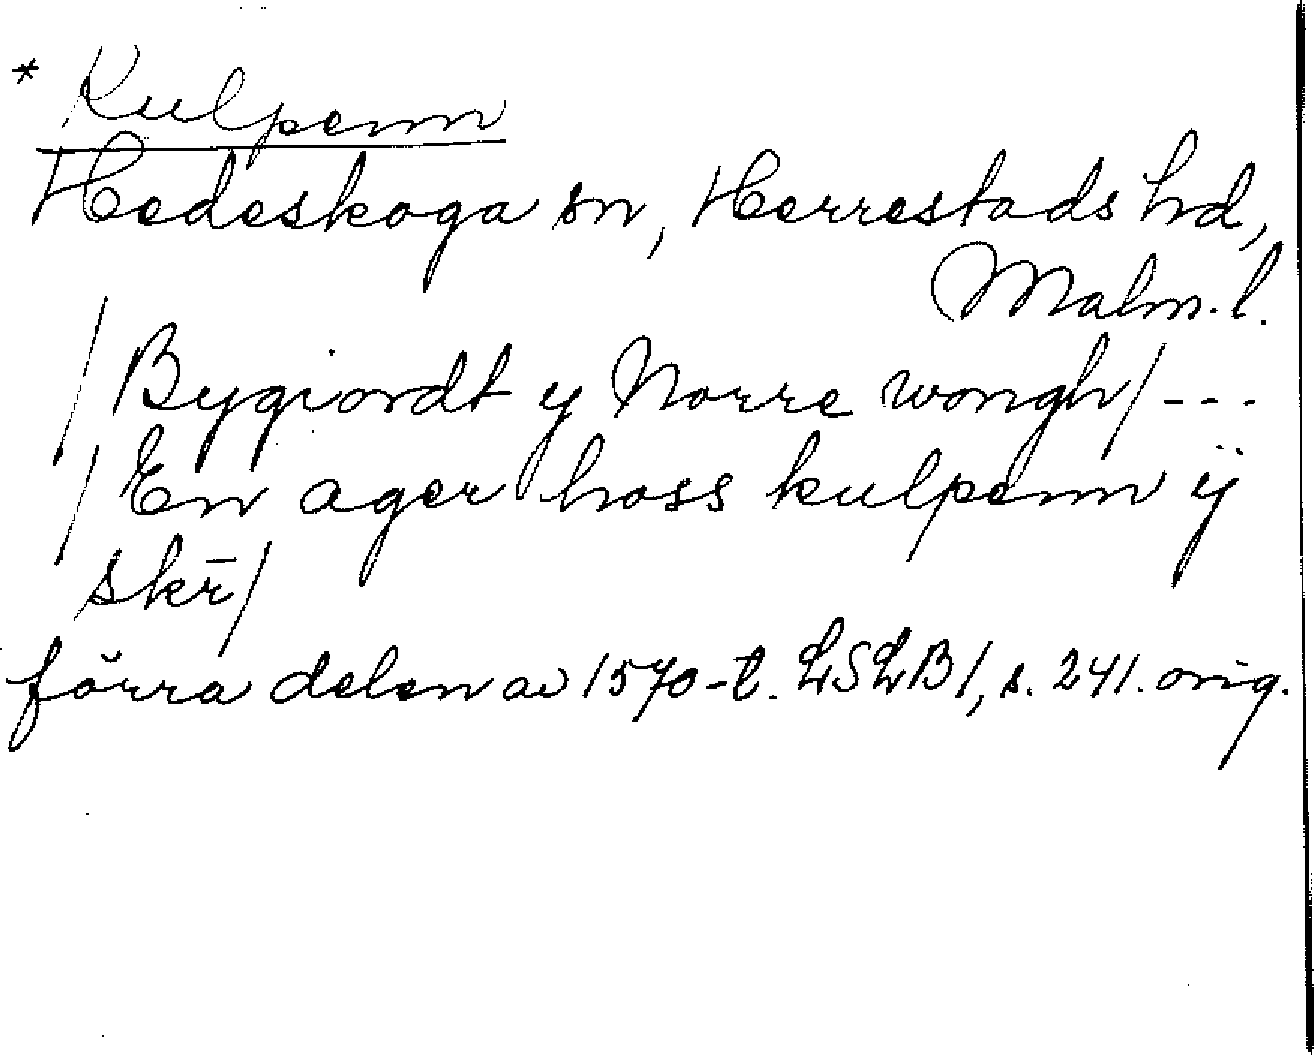 * Kulpenn
Hedeskoga sn, Herrestads hd,
Malm. l.
/ Bygiordt y Norre wongh / ---
/ En ager hoss kulpenn ÿ
skr̄ /
förra delen av 1570-t. LSLB1, s. 241. orig.